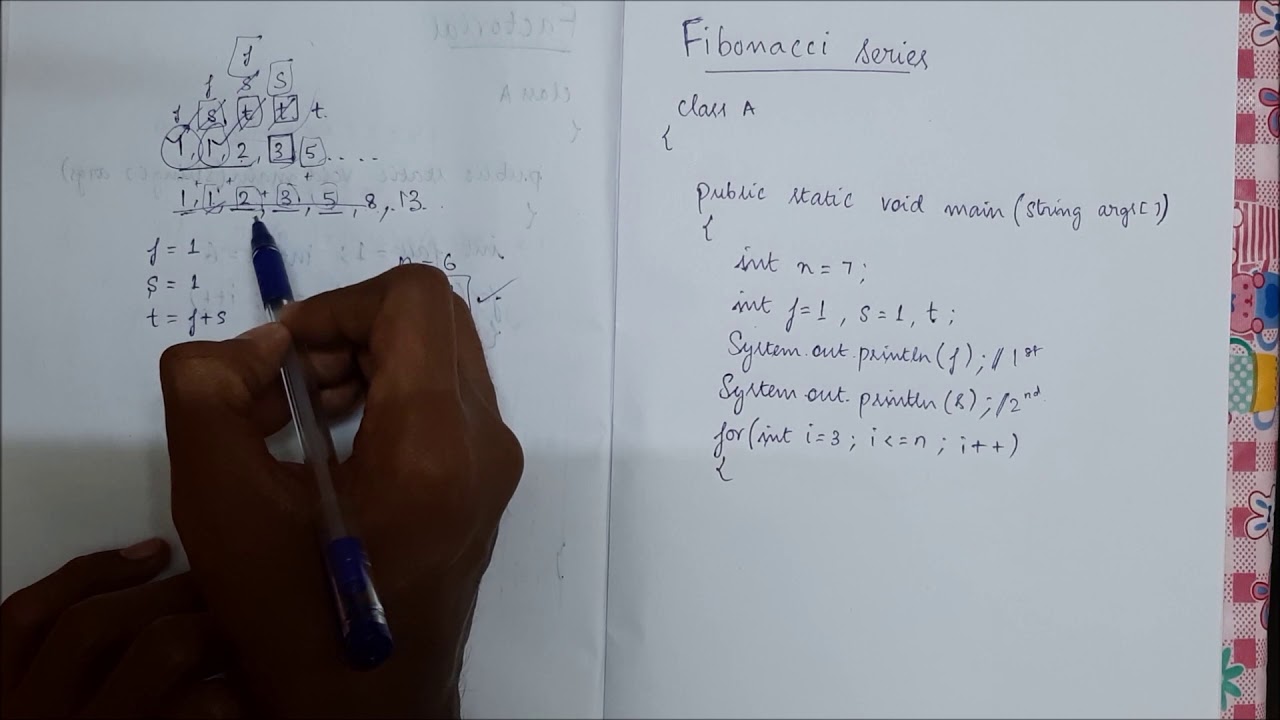 f
f s s
f s t t t.
1, 1, 2, 3, 5 . . . .
1, 1, 2, 3, 5, 8, 13.
f = 1
s = 1
t = f+s
n = 6
Fibonacci series
class A
{
public static void main (string args[])
{
int n = 7;
int f=1, s=1, t;
System.out.println(f); // 1st
System.out.println(s); // 2nd.
for(int i=3; i<=n; i++)
{